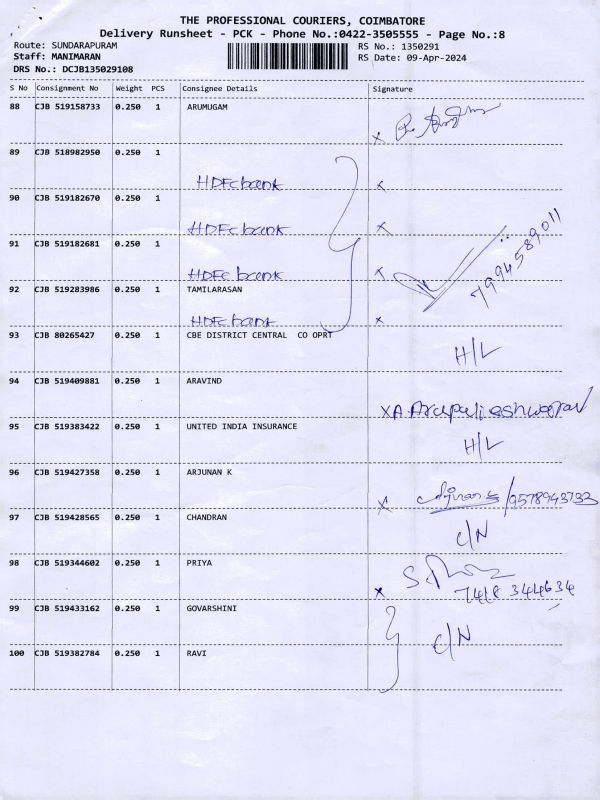 THE PROFESSIONAL COURIERS, COIMBATORE
Delivery Runsheet - PCK - Phone No.:0422-3505555 - Page No.:8
Route: SUNDARAPURAM RS No.: 1350291
Staff: MANIMARAN RS Date: 09-Apr-2024
DRS No.: DCJB135029108
S No Consignment No Weight PCS Consignee Details Signature
88 CJB 519158733 0.250 1 ARUMUGAM
x
89 CJB 518982950 0.250 1
HDFC bank x
90 CJB 519182670 0.250 1
HDFC bank x
91 CJB 519182681 0.250 1
HDFC bank x 7994589011
92 CJB 519283986 0.250 1 TAMILARASAN
HDFC bank x
93 CJB 80265427 0.250 1 CBE DISTRICT CENTRAL CO OPRT
H/L
94 CJB 519409881 0.250 1 ARAVIND
x A.
95 CJB 519383422 0.250 1 UNITED INDIA INSURANCE
H/L
96 CJB 519427358 0.250 1 ARJUNAN K
x 9578943733
97 CJB 519428565 0.250 1 CHANDRAN
C/N
98 CJB 519344602 0.250 1 PRIYA
x 7418 344634
99 CJB 519433162 0.250 1 GOVARSHINI
C/N
100 CJB 519382784 0.250 1 RAVI